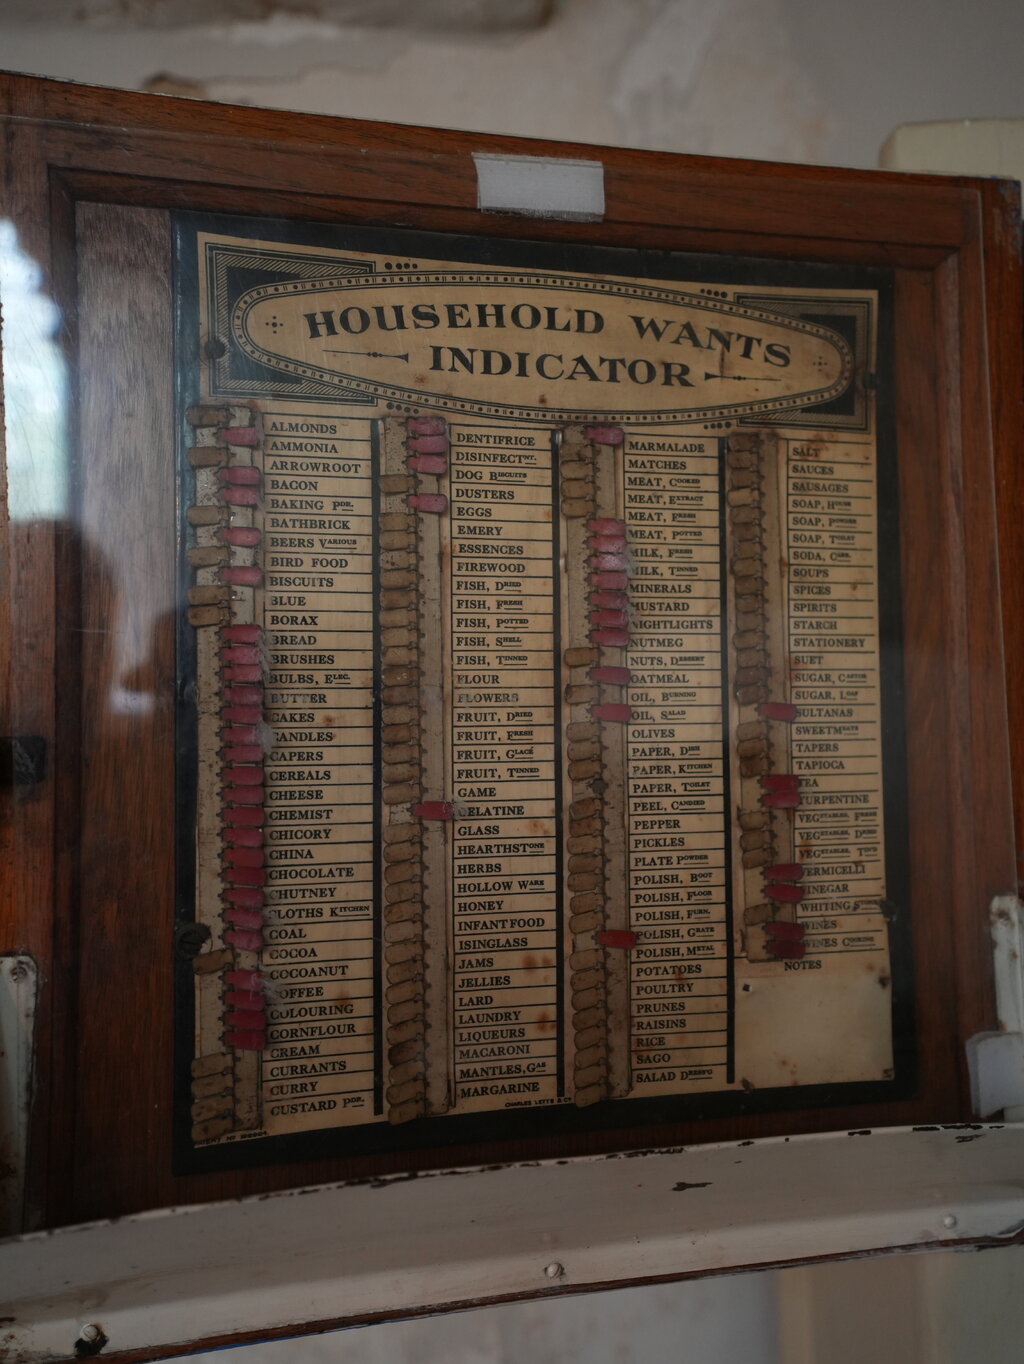 HOUSEHOLD WANTS
INDICATOR
ALMONDS
AMMONIA
ARROWROOT
BACON
BAKING PDR.
BATHBRICK
BEERS VARIOUS
BIRD FOOD
BISCUITS
BLUE
BORAX
BREAD
BRUSHES
BULBS, ELEC.
BUTTER
CAKES
CANDLES
CAPERS
CEREALS
CHEESE
CHEMIST
CHICORY
CHINA
CHOCOLATE
CHUTNEY
CLOTHS KITCHEN
COAL
COCOA
COCOANUT
COFFEE
COLOURING
CORNFLOUR
CREAM
CURRANTS
CURRY
CUSTARD PDR.
DENTIFRICE
DISINFECTNT.
DOG BISCUITS
DUSTERS
EGGS
EMERY
ESSENCES
FIREWOOD
FISH, DRIED
FISH, FRESH
FISH, POTTED
FISH, SHELL
FISH, TINNED
FLOUR
FLOWERS
FRUIT, DRIED
FRUIT, FRESH
FRUIT, GLACÉ
FRUIT, TINNED
GAME
GELATINE
GLASS
HEARTHSTONE
HERBS
HOLLOW WARE
HONEY
INFANT FOOD
ISINGLASS
JAMS
JELLIES
LARD
LAUNDRY
LIQUEURS
MACARONI
MANTLES, GAS
MARGARINE
CHARLES LETTS & CO
MARMALADE
MATCHES
MEAT, COOKED
MEAT, EXTRACT
MEAT, FRESH
MEAT, POTTED
MILK, FRESH
MILK, TINNED
MINERALS
MUSTARD
NIGHTLIGHTS
NUTMEG
NUTS, DESSERT
OATMEAL
OIL, BURNING
OIL, SALAD
OLIVES
PAPER, DISH
PAPER, KITCHEN
PAPER, TOILET
PEEL, CANDIED
PEPPER
PICKLES
PLATE POWDER
POLISH, BOOT
POLISH, FLOOR
POLISH, FURN.
POLISH, GRATE
POLISH, METAL
POTATOES
POULTRY
PRUNES
RAISINS
RICE
SAGO
SALAD DRESS'G
SALT
SAUCES
SAUSAGES
SOAP, HOUSE
SOAP, POWDER
SOAP, TOILET
SODA, CARB.
SOUPS
SPICES
SPIRITS
STARCH
STATIONERY
SUET
SUGAR, CASTER
SUGAR, LOAF
SULTANAS
SWEETMEATS
TAPERS
TAPIOCA
TEA
TURPENTINE
VEGETABLES, FRESH
VEGETABLES, DRIED
VEGETABLES, TIN'D
VERMICELLI
VINEGAR
WHITING
WINES
WINES COOKING
NOTES